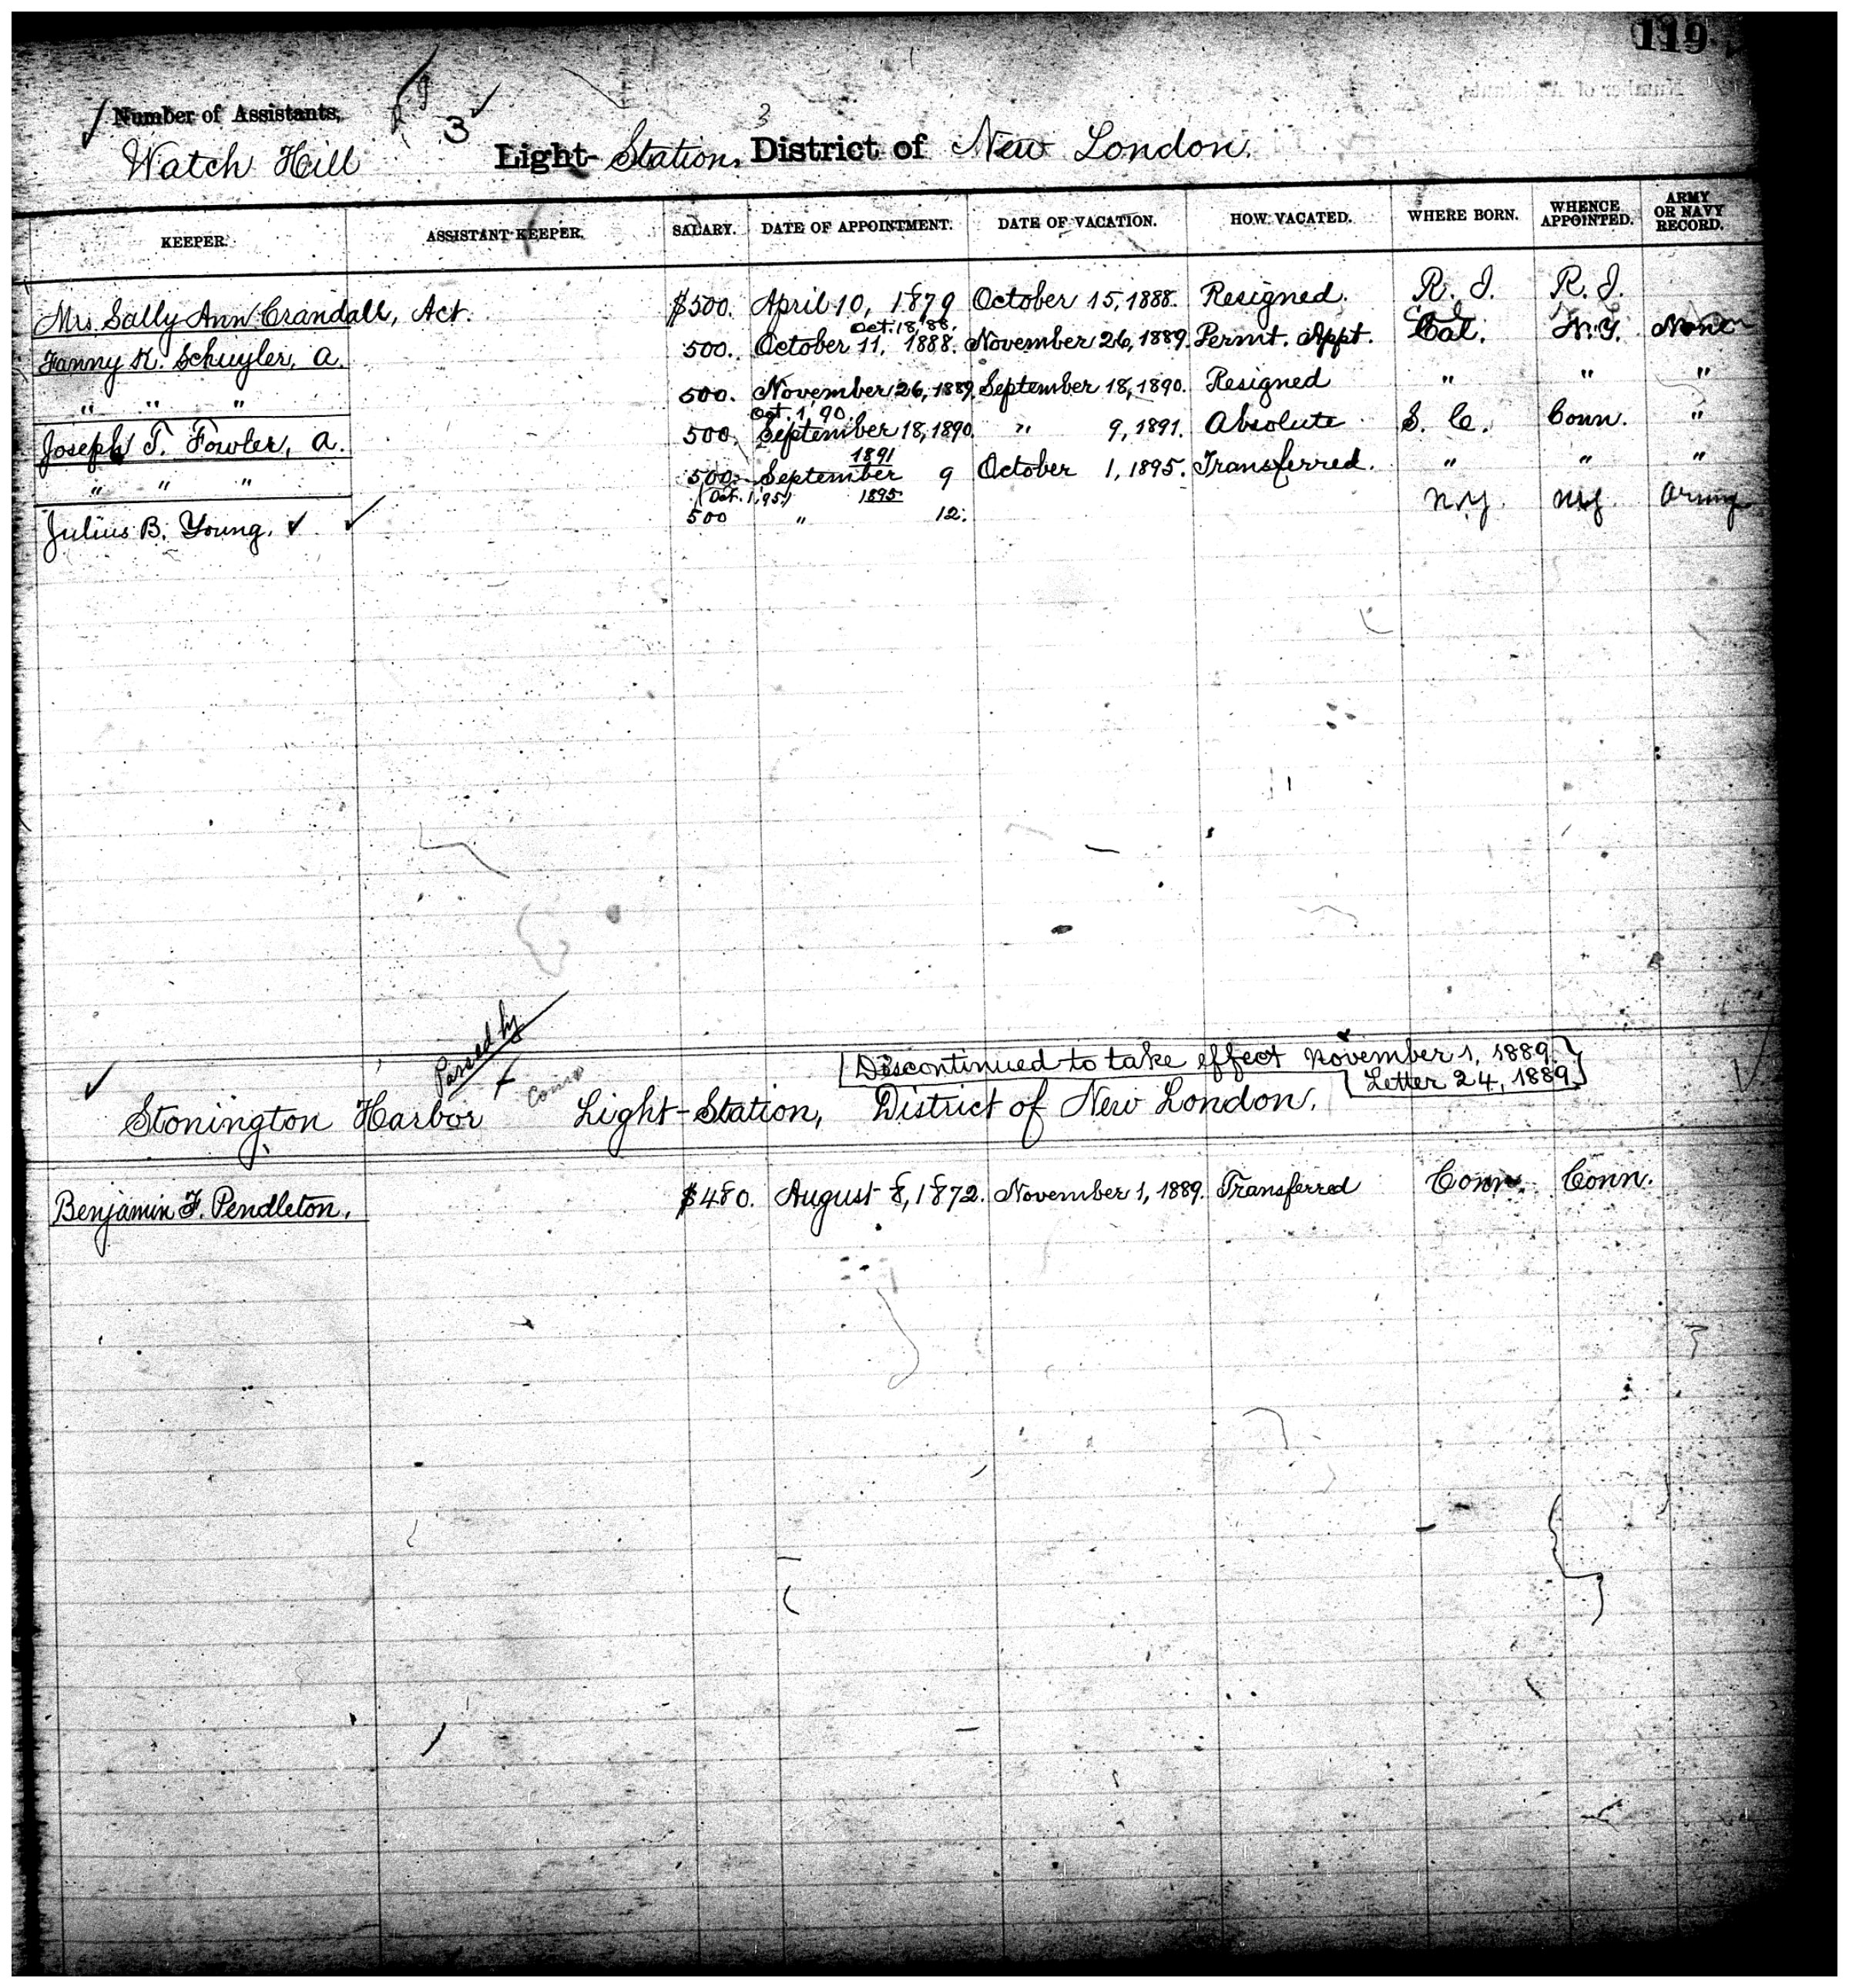 119.
Number of Assistants,
3
3
Watch Hill Light-Station, District of New London.
KEEPER. ASSISTANT KEEPER. SALARY. DATE OF APPOINTMENT. DATE OF VACATION. HOW VACATED. WHERE BORN. WHENCE APPOINTED. ARMY OR NAVY RECORD.
Mrs Sally Ann Crandall, Act. $500. April 10, 1879 October 15, 1888. Resigned. R. I. R. I.
Oct. 18, '88.
Fanny K. Schuyler, A. 500. October 11, 1888. November 26, 1889 Permt. Appt. Cal. N.Y. None
" " " 500. November 26, 1889 September 18, 1890. Resigned " " "
Oct. 1, 90.
Joseph T. Fowler, A. 500. September 18, 1890. " 9, 1891. Absolute S. C. Conn. "
1891
" " " 500. September 9 October 1, 1895. Transferred. " " "
(Oct. 1, 95) 1895
Julius B. Young. 500 " 12. N.Y. N.Y. Army
Passed by
Discontinued to take effect November 1, 1889.
Letter 24, 1889.
Stonington Harbor Light-Station, District of New London.
Benjamin F. Pendleton. $480. August 8, 1872. November 1, 1889. Transferred Conn. Conn.